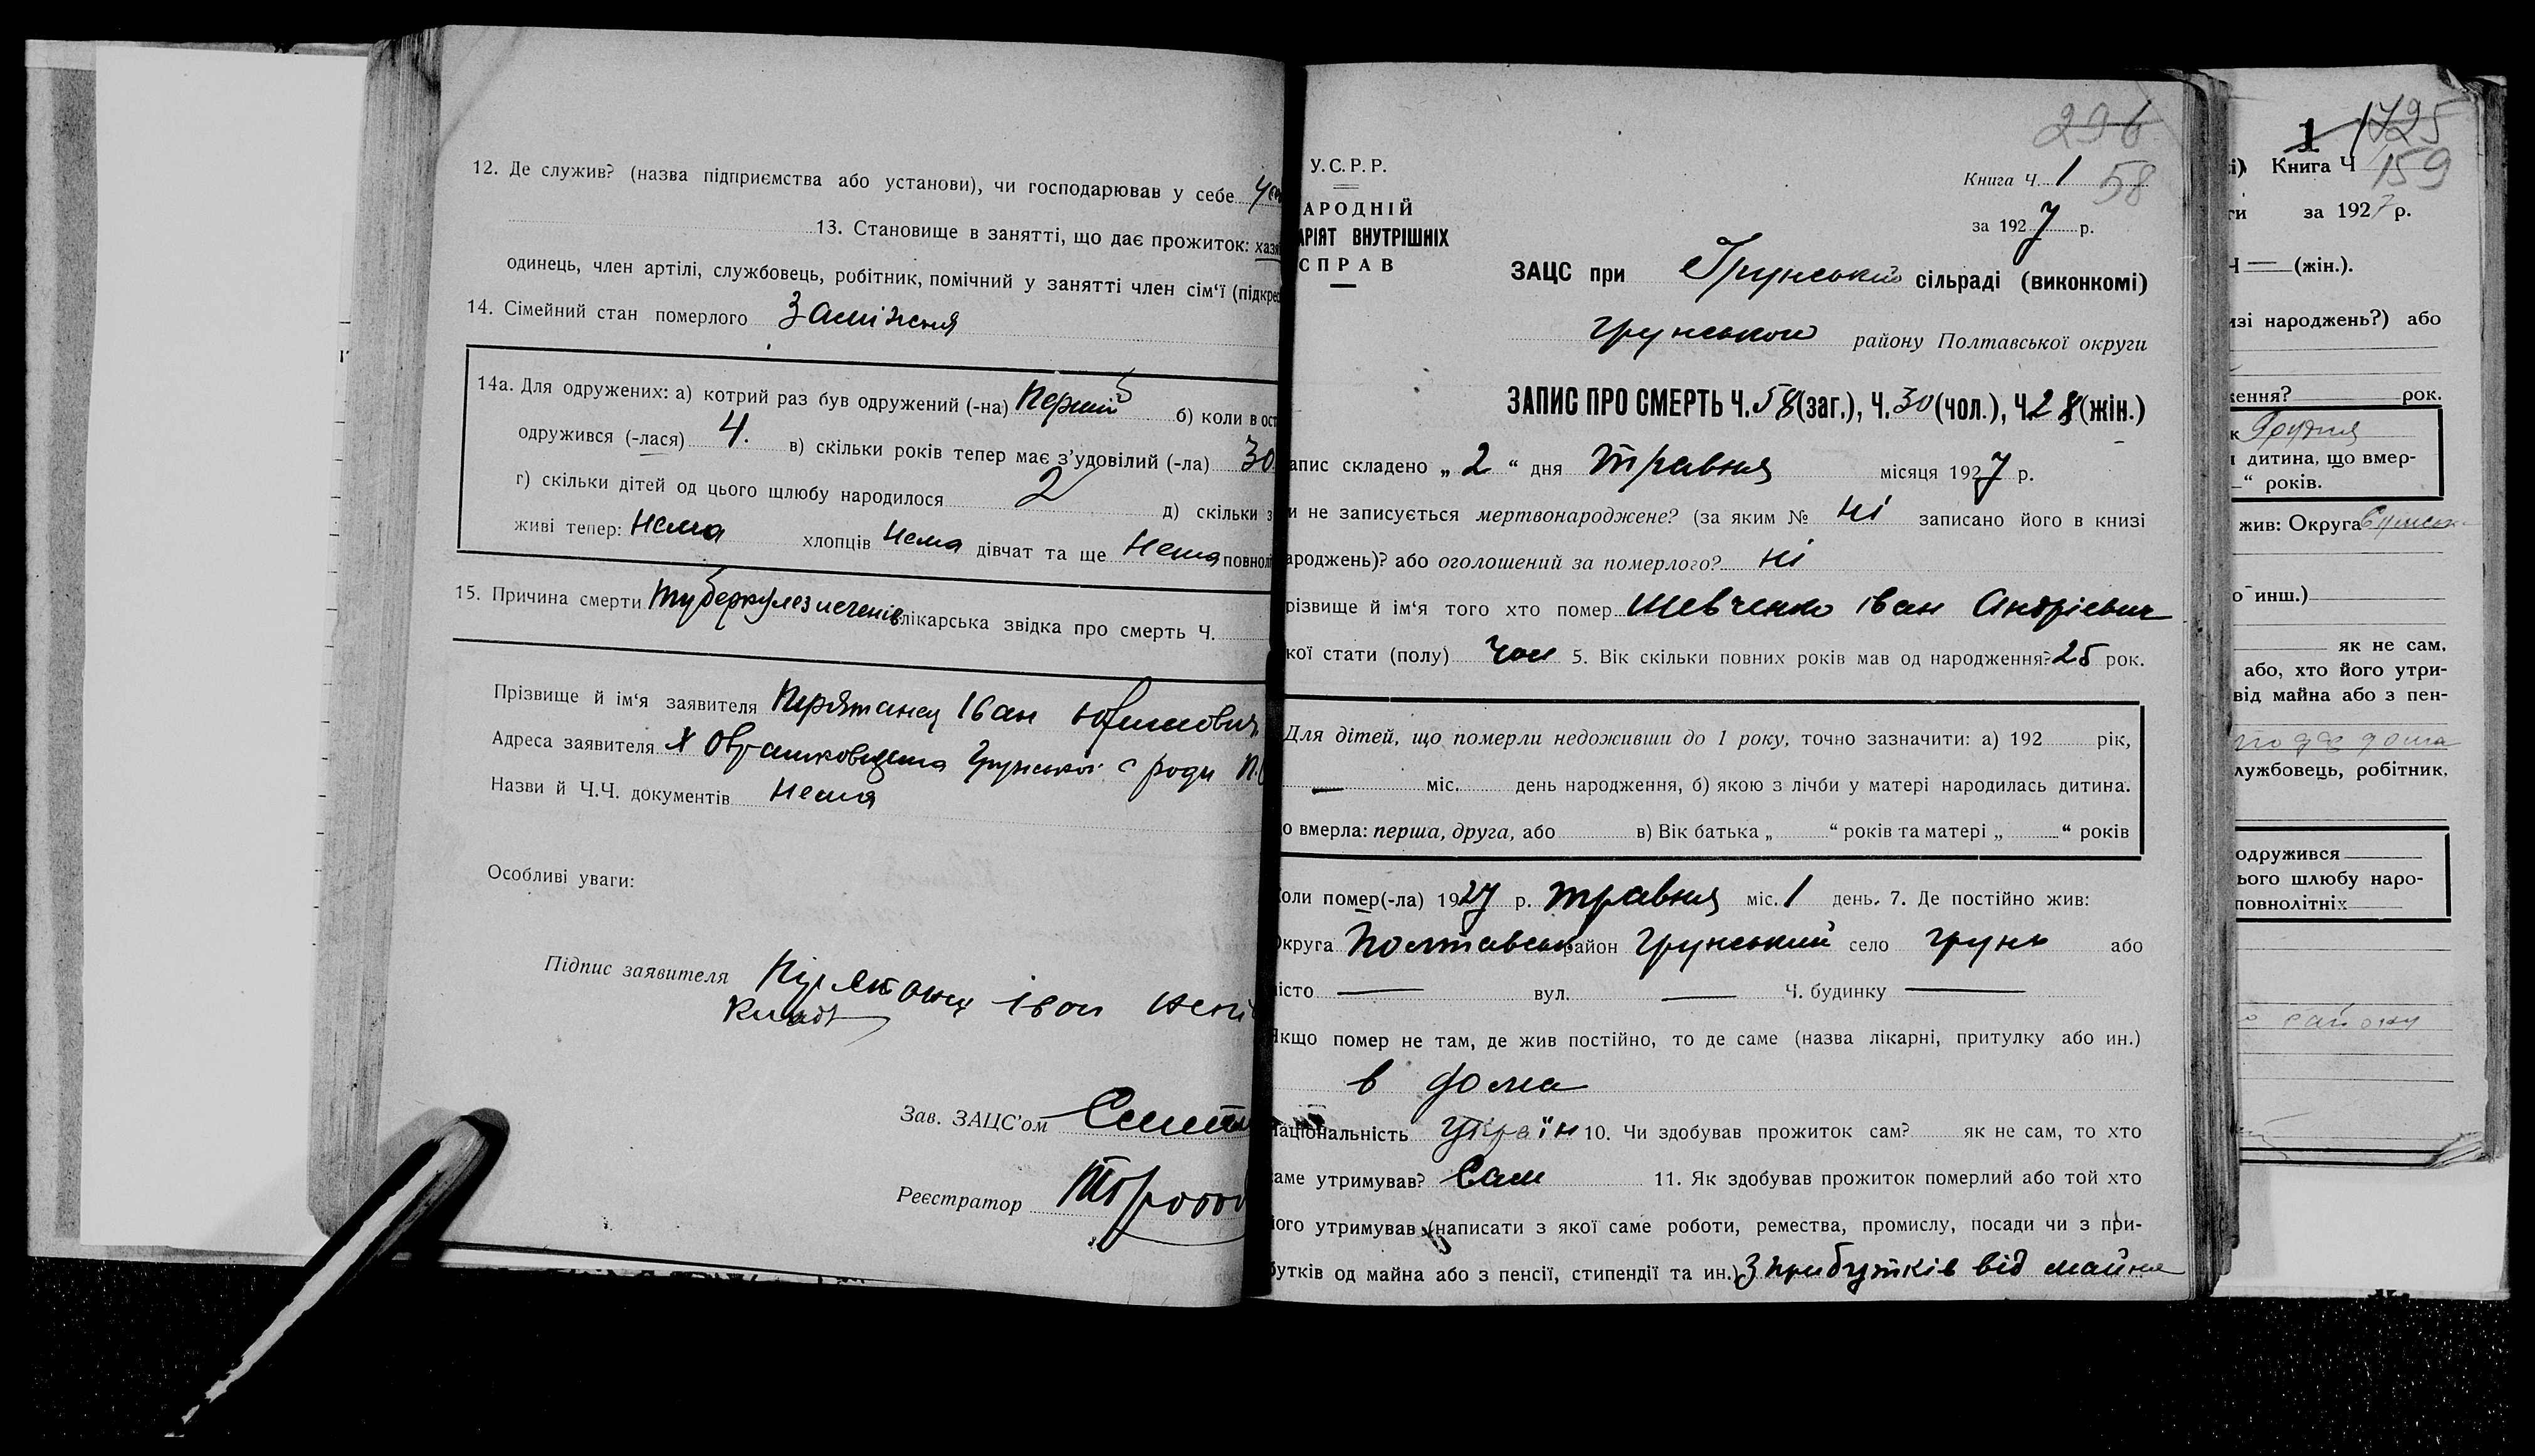 12. Де служив? (назва підприємства або установи), чи господарював у себе
13. Становище в занятті, що дає прожиток: хазя
одинець, член артілі, службовець, робітник, помічний у занятті член сім'ї (підкрес
14. Сімейний стан померлого Заміжня
14а. Для одружених: а) котрий раз був одружений (-на) Перший б) коли в ост
одружився (-лася) 4. в) скільки років тепер має з'удовілий (-ла) 30
г) скільки дітей од цього шлюбу народилося 2 д) скільки з
живі тепер: Нема хлопців Нема дівчат та ще Нема повнолі
15. Причина смерти лікарська звідка про смерть Ч.
Прізвище й ім'я заявителя Іван
Адреса заявителя Х Грунської с ради
Назви й Ч.Ч. документів Нема
Особливі уваги:
Підпис заявителя Іван
Зав. ЗАЦС'ом
Реєстратор
296
У.С.Р.Р.
Книга Ч. 1 58
АРОДНІЙ
за 1927 р.
АРІЯТ ВНУТРІШНІХ
СПРАВ
ЗАЦС при Грунській сільраді (виконкомі)
Грунського району Полтавської округи
ЗАПИС ПРО СМЕРТЬ Ч. 58 (заг.), Ч. 30 (чол.), Ч. 28 (жін.)
апис складено „ 2 “ дня травня місяця 1927 р.
и не записується мертвонароджене? (за яким № ні записано його в книзі
ароджень)? або оголошений за померлого? ні
різвище й ім'я того хто помер Шевченко Іван Андрієвич
кої стати (полу) чол 5. Вік скільки повних років мав од народження? 25 рок.
Для дітей, що померли недоживши до 1 року, точно зазначити: а) 192 рік,
— міс. день народження, б) якою з лічби у матері народилась дитина.
о вмерла: перша, друга, або в) Вік батька „ “ років та матері „ “ років
оли помер(-ла) 1927 р. травня міс. 1 день. 7. Де постійно жив:
Округа Полтавськ район Грунський село Грунь або
місто — вул. — Ч. будинку —
Якщо помер не там, де жив постійно, то де саме (назва лікарні, притулку або ин.)
в дома
Національність україн 10. Чи здобував прожиток сам? як не сам, то хто
саме утримував? Сам 11. Як здобував прожиток померлий або той хто
його утримував (написати з якої саме роботи, ремества, промислу, посади чи з при-
бутків од майна або з пенсії, стипендії та ин.) З прибутків від майна
1 1725
і) Книга Ч 159
ти за 1927 р.
Ч — (жін.).
изі народжень?) або
ження? рок.
к Грудня
и дитина, що вмер-
—“ років.
жив: Округа Сумськ
о инш.)
як не сам,
або, хто його утри-
від майна або з пен-
дома
лужбовець, робітник,
одружився
ього шлюбу наро-
повнолітніх
району